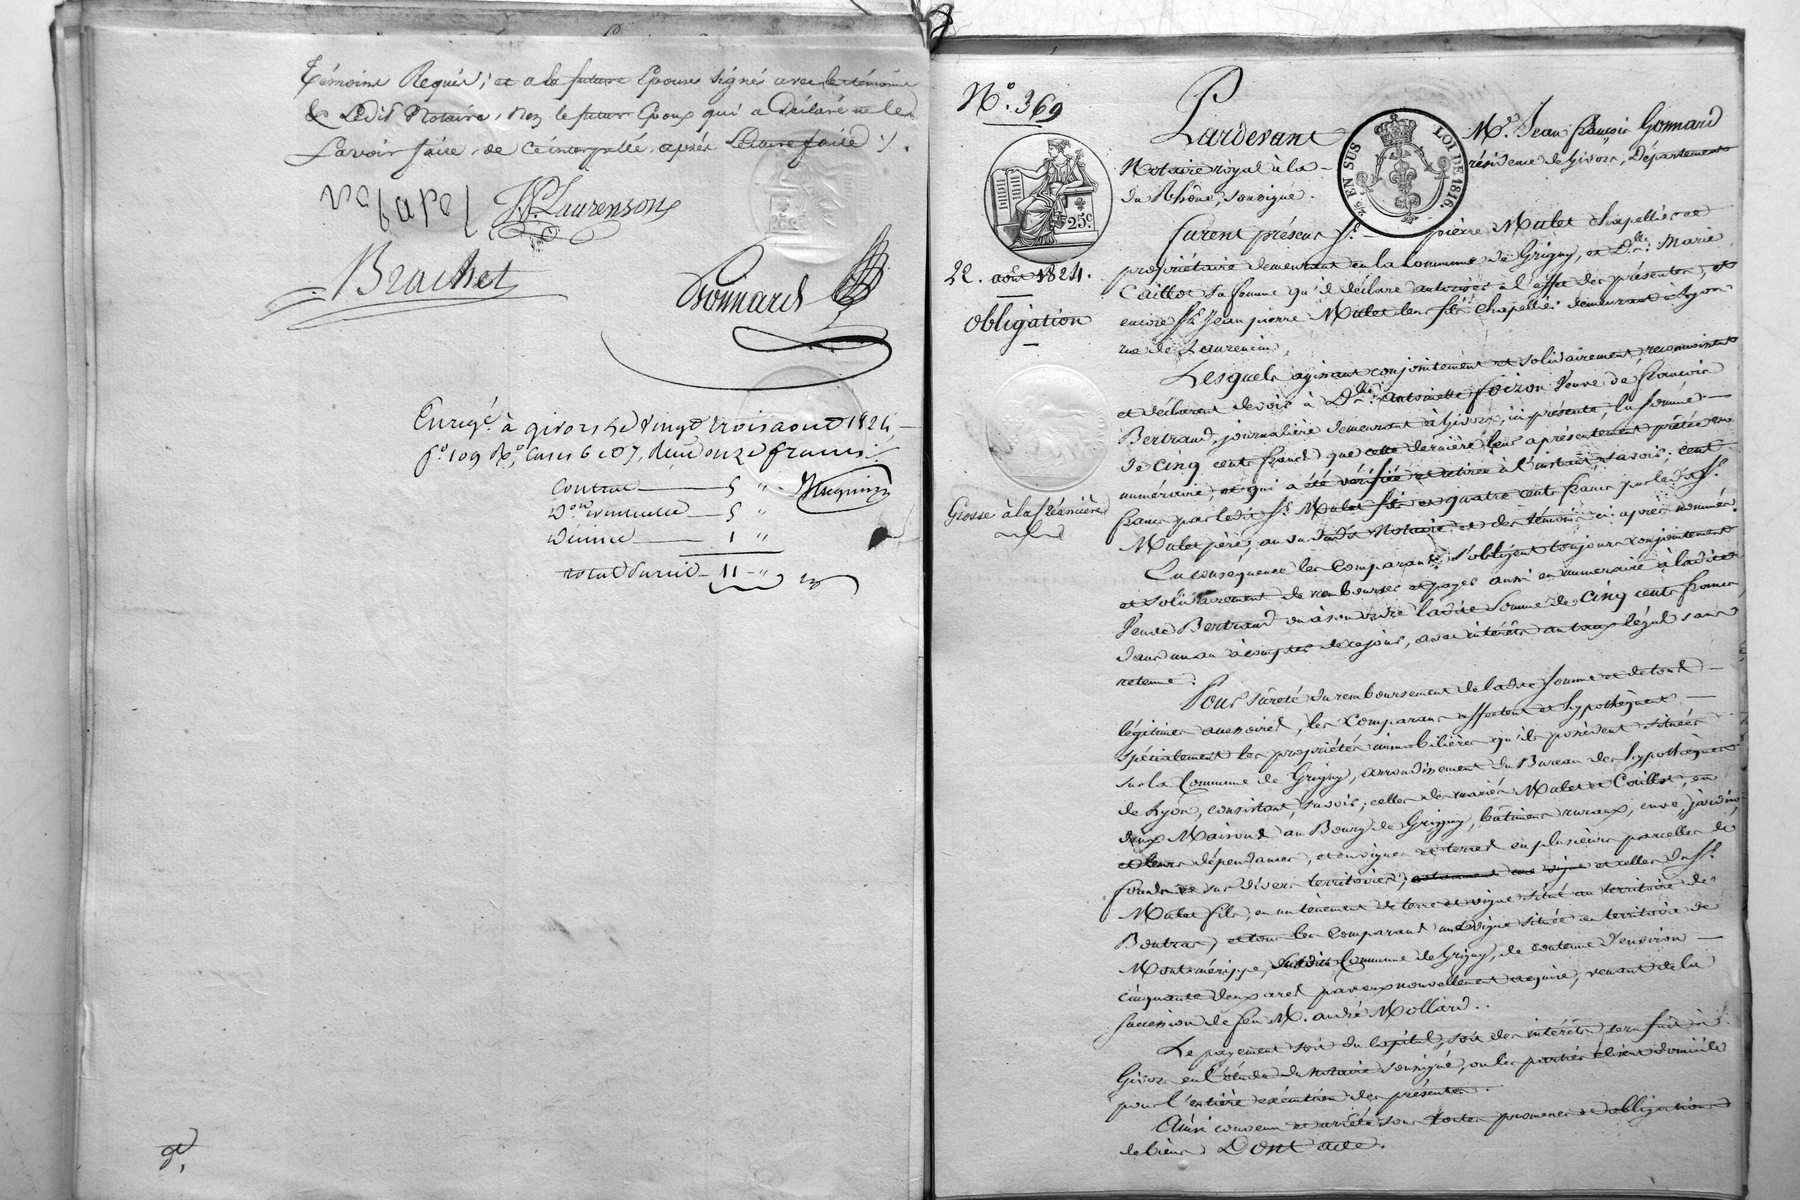 Témoins Requis; et a la future Epouse signé avec le témoins
& Ledit Notaire, Non le futur Epoux qui a Déclaré ne le
Savoir faire, de ce interpellé, après Lecture faite ./.
J. P. Laurenson
Brachet
Gonnard
Enregé. à givors le vingt trois aout 1824,
fo. 109 Ro, cases 6 et 7, Reçu onze francs
Contrat 5 "
Don mutuelle 5 "
Décime 1 "
total Onze 11 - "
No. 369
25c.
22. août 1824.
Obligation
Grosse à la créancière
Pardevant Me. Jean françois Gonnard
Notaire royal à la résidence de Givors, Département
du Rhône, soussigné.
EN SUS LOI DE 1816.
furent présens Sr. pierre Mulet Chapellier et
propriétaire demeurant en la Commune de Grigny, et Dlle. Marie
Caillot sa femme qu'il déclare autoriser à l'effet des présentes, et
encore Sr. Jean pierre Mulet leur fils Chapellier demeurant à Lyon
rue de Laurencin,
Lesquels agissant conjointement et solidairement, reconnoissent
et déclarent devoir à Dlle. Antoinette veuve de françois
Bertrand, journalière demeurant à Givors, ici présente, la somme
de Cinq cents francs que cette dernière leur a présentement prêtée en
numéraire, et qui a été vérifiée et retirée à l'instant, savoir: cent
francs par ledit Sr. Mulet fils et quatre cents francs par ledit Sr.
Mulet père, au vu dudit Notaire et des témoins ci après nommés.
En conséquence les Comparants s'obligent toujours conjointement
et solidairement de rembourser et payer aussi en numéraire à ladite
Veuve Bertrand ou à son ordre ladite Somme de Cinq cents francs
dans un an à compter de ce jour, avec intérêts au taux légal sans
retenue.
Pour sûreté du remboursement de ladite somme et de tous
légitimes accessoires, les Comparans affectent et hypothèquent
spécialement les propriétés immobilières qu'ils possèdent situées
sur la Commune de Grigny, arrondissement du Bureau des hypothèques
de Lyon, consistant, savoir; celles des mariés Mulet et Caillot, en
deux Maisons au Bourg de Grigny, bâtimens ruraux, cuve, jardin,
et leurs dépendances, et en vignes et terres en plusieurs parcelles de
fonds sur divers territoires; et celles du Sr.
Mulet fils, en un tènement de terre et vigne situé au territoire de
Boutras, et tous les Comparans une vigne située en territoire de
Montmérippe, susdite Commune de Grigny, de contenue d'environ
cinquante deux ares par eux nouvellement acquise, venant de la
succession de feu M. andré Mollard.
Le payement soit du Capital, soit des intérêts sera fait à
Givors en l'étude du notaire soussigné, où les parties élisent domicile
pour l'entière exécution des présentes.
Ainsi convenu et arrêté sous toutes promesses et obligations
de biens Dont acte.